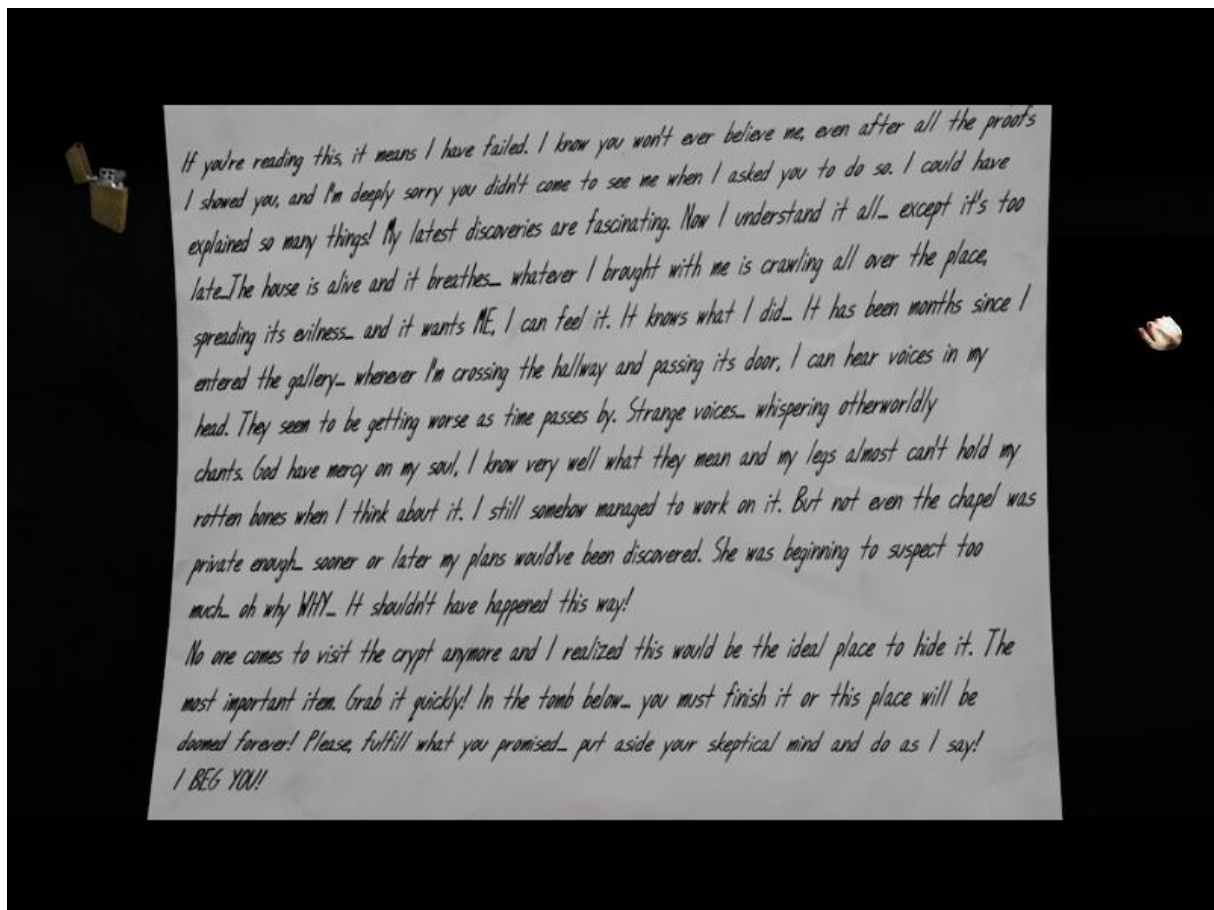 If you're reading this, it means I have failed. I know you won't ever believe me, even after all the proofs
I showed you, and I'm deeply sorry you didn't come to see me when I asked you to do so. I could have
explained so many things! My latest discoveries are fascinating. Now I understand it all... except it's too
late...The house is alive and it breathes... whatever I brought with me is crawling all over the place,
spreading its evilness... and it wants ME, I can feel it. It knows what I did... It has been months since I
entered the gallery... whenever I'm crossing the hallway and passing its door, I can hear voices in my
head. They seem to be getting worse as time passes by. Strange voices... whispering otherworldly
chants. God have mercy on my soul, I know very well what they mean and my legs almost can't hold my
rotten bones when I think about it. I still somehow managed to work on it. But not even the chapel was
private enough... sooner or later my plans would've been discovered. She was beginning to suspect too
much... oh why WHY... It shouldn't have happened this way!
No one comes to visit the crypt anymore and I realized this would be the ideal place to hide it. The
most important item. Grab it quickly! In the tomb below... you must finish it or this place will be
doomed forever! Please, fulfill what you promised... put aside your skeptical mind and do as I say!
I BEG YOU!